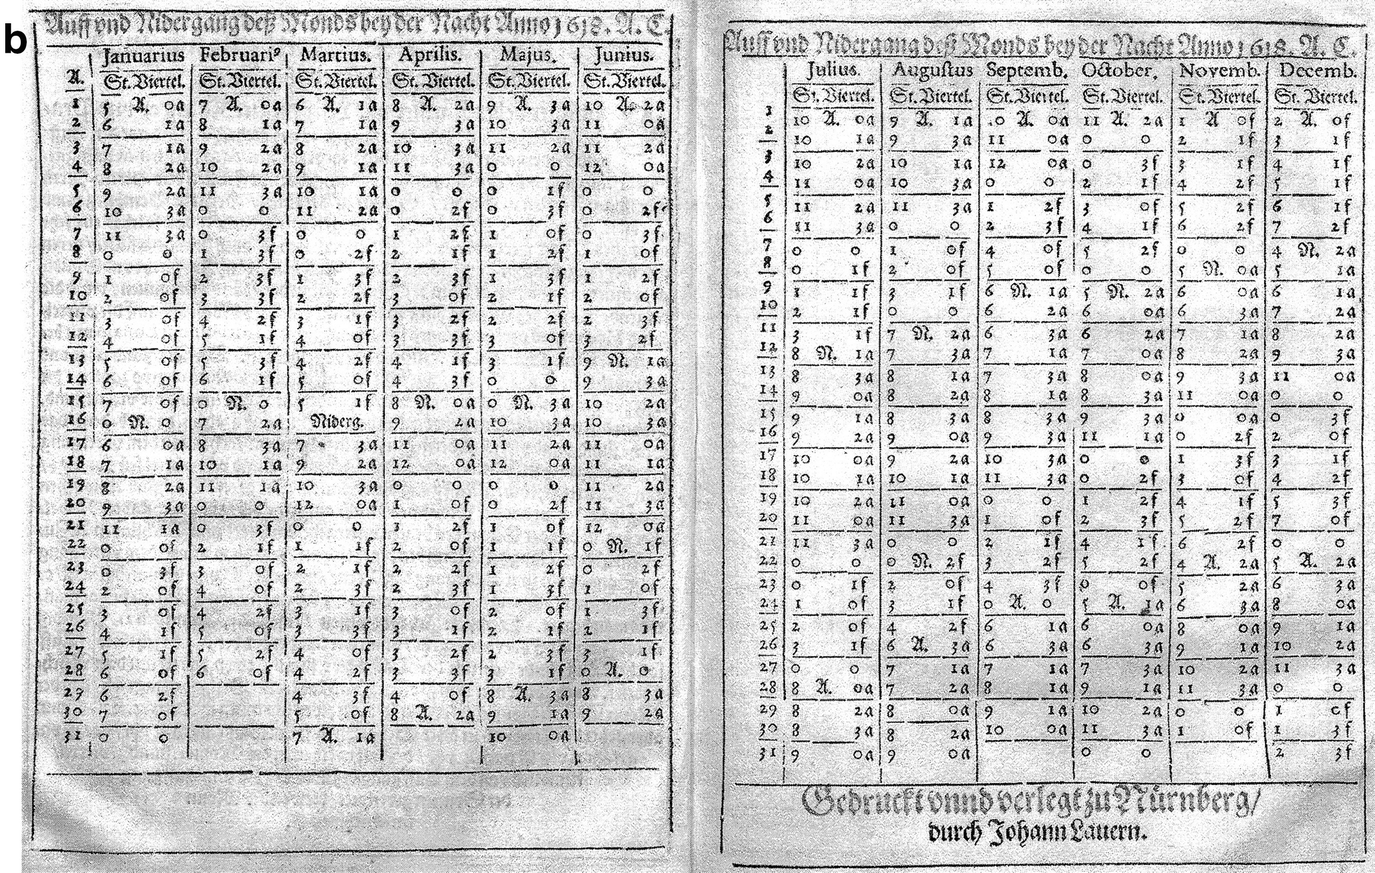 b
Auff vnd Nidergang deß Monds bey der Nacht Anno 1618. A. C.
Januarius Februariꝰ Martius. Aprilis. Majus. Junius.
A. St. Viertel. St. Viertel. St. Viertel. St. Viertel. St. Viertel. St. Viertel.
1 5 A. 0a 7 A. 0a 6 A. 1a 8 A. 2a 9 A. 3a 10 A. 2a
2 6 1a 8 1a 7 1a 9 3a 10 3a 11 0a
3 7 1a 9 2a 8 2a 10 3a 11 2a 11 2a
4 8 2a 10 2a 9 1a 11 3a 0 0 12 0a
5 9 2a 11 3a 10 1a 0 0 0 1f 0 0
6 10 3a 0 0 11 2a 0 2f 0 3f 0 2f
7 11 3a 0 3f 0 0 1 2f 1 0f 0 3f
8 0 0 1 3f 0 2f 2 1f 1 2f 1 0f
9 1 0f 2 3f 1 3f 2 3f 1 3f 1 3f
10 2 0f 3 3f 2 2f 3 0f 2 1f 2 0f
11 3 0f 4 2f 3 1f 3 2f 2 2f 2 3f
12 4 0f 5 1f 4 0f 3 3f 3 0f 3 2f
13 5 0f 5 3f 4 2f 4 1f 3 1f 9 N. 1a
14 6 0f 6 1f 5 0f 4 3f 0 0 9 3a
15 7 0f 0 N. 0 5 1f 8 N. 0a 0 N. 3a 10 2a
16 0 N. 0 7 2a Niderg. 9 2a 10 3a 10 3a
17 6 0a 8 3a 7 3a 11 0a 11 2a 11 0a
18 7 1a 10 1a 9 2a 12 0a 12 0a 11 1a
19 8 2a 11 1a 10 3a 0 0 0 0 11 2a
20 9 3a 0 0 12 0a 1 0f 0 2f 11 3a
21 11 1a 0 3f 0 0 1 2f 1 0f 12 0a
22 0 0f 2 1f 1 1f 2 0f 1 1f 0 N. 1f
23 0 3f 3 0f 2 1f 2 1f 1 2f 0 2f
24 2 0f 4 0f 2 3f 2 3f 1 3f 1 0f
25 3 0f 4 2f 3 1f 3 0f 2 0f 1 3f
26 4 1f 5 0f 3 3f 3 1f 2 1f 2 1f
27 5 1f 5 2f 4 0f 3 2f 2 3f 3 1f
28 6 0f 6 0f 4 2f 3 3f 3 1f 0 A. 0
29 6 2f 4 3f 4 0f 8 A. 3a 8 3a
30 7 0f 5 0f 8 A. 2a 9 1a 9 2a
31 0 0 7 A. 1a 10 0a
Auff vnd Nidergang deß Monds bey der Nacht Anno 1618. A. C.
Julius. Augustus Septemb. October. Novemb. Decemb.
St. Viertel. St. Viertel. St. Viertel. St. Viertel. St. Viertel. St. Viertel.
1 10 A. 0a 9 A. 1a 10 A. 0a 11 A. 2a 1 A 0f 2 A. 0f
2 10 1a 9 3a 11 0a 0 0 2 1f 3 1f
3 10 2a 10 1a 12 0a 0 3f 3 1f 4 1f
4 11 0a 10 3a 0 0 2 1f 4 2f 5 1f
5 11 2a 11 3a 1 2f 3 0f 5 2f 6 1f
6 11 3a 0 0 2 3f 4 1f 6 2f 7 2f
7 0 0 1 0f 4 0f 5 2f 0 0 4 N. 2a
8 0 1f 2 0f 5 0f 0 0 5 N. 0a 5 1a
9 1 1f 3 1f 6 N. 1a 5 N. 2a 6 0a 6 1a
10 2 1f 0 0 6 2a 6 0a 6 3a 7 2a
11 3 1f 7 N. 2a 6 3a 6 2a 7 1a 8 2a
12 8 N. 1a 7 3a 7 1a 7 0a 8 2a 9 3a
13 8 3a 8 1a 7 3a 8 0a 9 3a 11 0a
14 9 0a 8 2a 8 1a 8 3a 11 0a 0 0
15 9 1a 8 3a 8 3a 9 3a 0 0a 0 3f
16 9 2a 9 0a 9 3a 11 1a 0 2f 2 0f
17 10 0a 9 2a 10 3a 0 0 1 3f 3 1f
18 10 1a 10 1a 11 3a 0 2f 3 0f 4 2f
19 10 2a 11 0a 0 0 1 2f 4 1f 5 3f
20 11 0a 11 3a 1 0f 2 3f 5 2f 7 0f
21 11 3a 0 0 2 1f 4 1f 6 2f 0 0
22 0 0 0 N. 2f 3 2f 5 2f 4 A. 2a 5 A. 2a
23 0 1f 2 0f 4 3f 0 0f 5 2a 6 3a
24 1 0f 3 1f 0 A. 0 5 A. 1a 6 3a 8 0a
25 2 0f 4 2f 6 1a 6 0a 8 0a 9 1a
26 3 1f 6 A. 3a 6 3a 6 3a 9 1a 10 2a
27 0 0 7 1a 7 1a 7 3a 10 2a 11 3a
28 8 A. 0a 7 2a 8 1a 9 1a 11 3a 0 0
29 8 2a 8 0a 9 1a 10 2a 0 0 1 0f
30 8 3a 8 2a 10 0a 11 3a 1 0f 1 3f
31 9 0a 9 0a 0 0 2 3f
Gedruckt vnnd verlegt zu Nürnberg/
durch Johann Lauern.